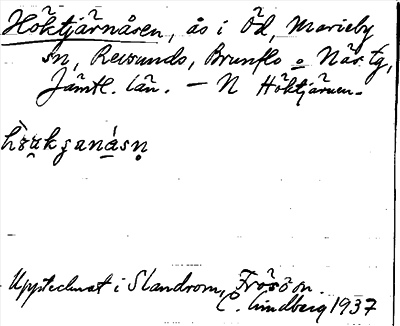 Höktjärnåsen, ås i Öd, Marieby
sn, Revsunds, Brunflo o Näs tg,
Jämtl. län. — N Höktjärnen.
Upptecknat i Slandrom, Frösön.
C. Lindberg 1937